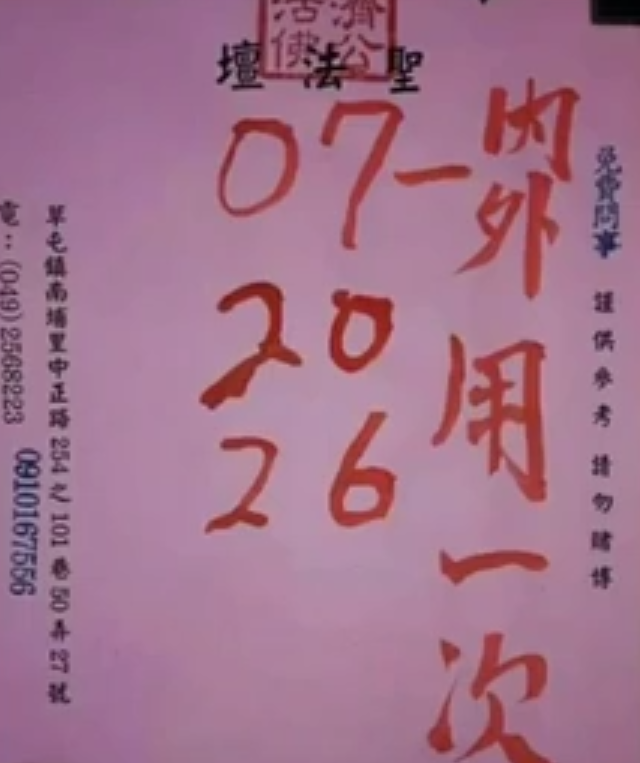 濟公
活佛
聖法壇
免費問事 謹供參考 請勿賭博
內外用一次
07一
20
26
草屯鎮南埔里中正路254之101巷50弄27號
電:(049)2568223
0910167556